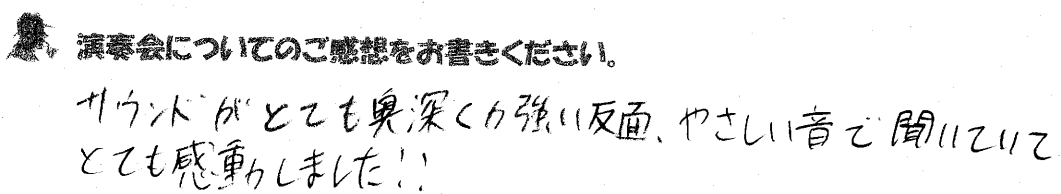 演奏会についてのご感想をお書きください。
サウンドがとても奥深く力強い反面、やさしい音で聞いていて
とても感動しました!!